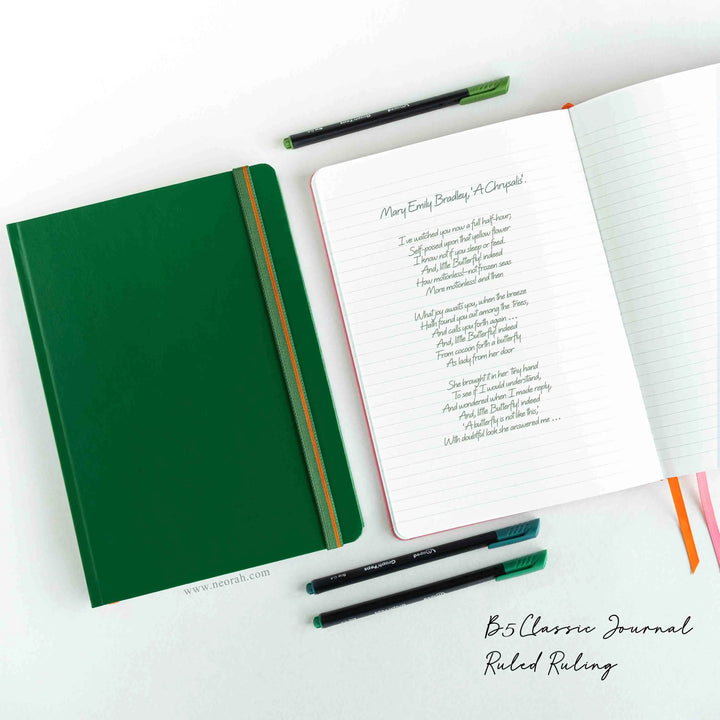 Mary Emily Bradley, 'A Chrysalis'.
I've watched you now a full half-hour;
Self-poised upon that yellow flower
I know not if you sleep or feed.
And, little Butterfly! indeed
How motionless!–not frozen seas
More motionless! and then
What joy awaits you, when the breeze
Hath found you out among the trees,
And calls you forth again ...
And, little Butterfly! indeed
From cocoon forth a butterfly
As lady from her door
She brought it in her tiny hand
To see if I would understand,
And wondered when I made reply,
And, little Butterfly! indeed
'A butterfly is not like this,'
With doubtful look she answered me ...
www.neorah.com
B5 Classic Journal
Ruled Ruling